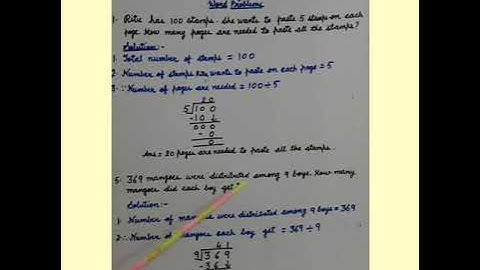 Word Problems
1. Ritu has 100 stamps. She wants to paste 5 stamps on each
page. How many pages are needed to paste all the stamps?
Solution:-
1. Total number of stamps = 100
2. Number of stamps she wants to paste on each page = 5
3. ∴ Number of pages are needed = 100÷5
20
5 100
-10↓
000
-0
0
Ans = 20 pages are needed to paste all the stamps.
5. 369 mangoes were distributed among 9 boys. How many
mangoes did each boy get
Solution:-
1. Number of mangoes were distributed among 9 boys = 369
2. ∴ Number of mangoes each boy get = 369 ÷ 9
41
9 369
-36↓